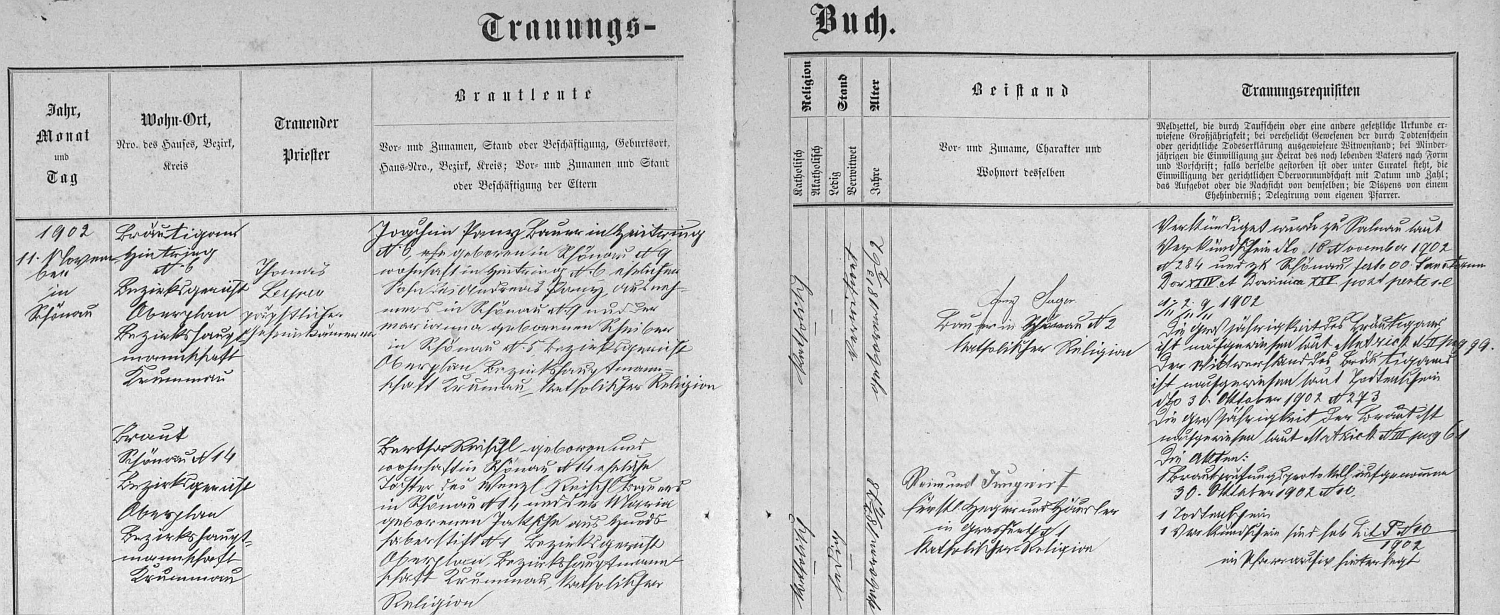 Trauungs-
Buch.
Jahr,
Monat
und
Tag
Wohn-Ort,
Nro. des Hauses, Bezirk,
Kreis
Trauender
Priester
Brautleute
Vor- und Zunamen, Stand oder Beschäftigung, Geburtsort,
Haus-Nro., Bezirk, Kreis; Vor- und Zunamen und Stand
oder Beschäftigung der Eltern
Religion
Katholisch
Akatholisch
Stand
Ledig
Verwitwet
Alter
Jahre
Beistand
Vor- und Zuname, Charakter und
Wohnort desselben
Trauungsrequisiten
Meldzettel, die durch Taufschein oder eine andere gesetzliche Urkunde er-
wiesene Großjährigkeit; bei verehelicht Gewesenen der durch Todtenschein
oder gerichtliche Todeserklärung ausgewiesene Witwenstand; bei Minder-
jährigen die Einwilligung zur Heirat des noch lebenden Vaters nach Form
und Vorschrift; falls derselbe gestorben ist oder unter Curatel steht, die
Einwilligung der gerichtlichen Obervormundschaft mit Datum und Zahl;
das Aufgebot oder die Nachsicht von demselben; die Dispens von einem
Ehehinderniß; Delegirung vom eigenen Pfarrer.
1902
11. Novem
ber
in
Schönau
Bräutigam
Hintring
N 6
Bezirksgericht
Oberplan
Bezirkshaupt
mannschaft
Krummau
Thomas
päpstlicher
Joachim Pany Bauer in Hintring
N 6 geboren in Schönau N 9
wohnhaft in Hintring N 6 ehelicher
Sohn des Andreas Pany Ausneh-
mers in Schönau N 9 und der
Marianna geborenen Schreiber
in Schönau N 5 Bezirksgericht
Oberplan Bezirkshauptmann-
schaft Krummau, katholischer Religion
katholisch
verwitwet
geboren
Bauer in Schönau N 2
katholischer Religion
Verkündiget wurde zu Salnau laut
Verkündschein dto 16 November 1902
N 284 und zu Schönau
1902
Die Großjährigkeit des Bräutigams
ist nachgewiesen laut Matrick N II pag 99.
Der Witwerstand des Bräutigams
ist nachgewiesen laut Todtenschein
dto 30. Oktober 1902 N 273
Die Großjährigkeit der Braut ist
nachgewiesen laut Matrick N III pag 61
Die Akten:
1 Brautprüfungsprotokoll aufgenommen
30. Oktober 1902
1 Todtenschein
1 Verkündschein sind sub
1902
im Pfarrarchiv hinterlegt
Braut
Schönau N 14
Bezirksgericht
Oberplan
Bezirkshaupt-
mannschaft
Krummau
Bertha Reischl geboren und
wohnhaft in Schönau N 14 eheliche
Tochter des Wenzl Reischl Bauers
in Schönau N 14 und der Maria
geborenen Jaksche aus Hunds-
haberstift N 1 Bezirksgericht
Oberplan, Bezirkshauptmann
schaft Krummau, katholischer
Religion
katholisch
ledig
geboren
Reimund Jungwirt
fürstl. Heger und Häusler
in
katholischer Religion